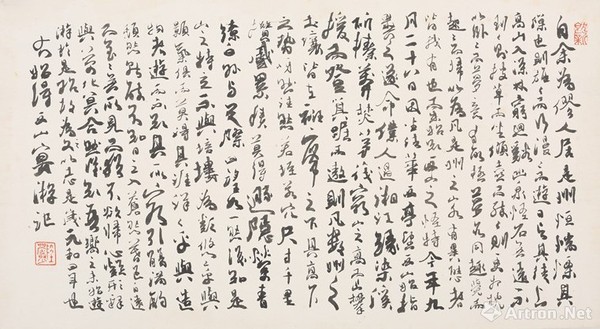 自余為僇人居是州恒惴慄其
隙也則施施而行漫漫而遊日與其徒上
高山入深林窮迴谿幽泉怪石無遠不
到到則披草而坐傾壺而醉醉則更相枕
以臥臥而夢意有所極夢亦同趣覺而
起起而歸以為凡是州之山水有異態者
皆我有也而未始知西山之怪特今年九
月二十八日因坐法華西亭望西山始指
異之遂命僕人過湘江緣染溪
斫榛莽焚茅茷窮山之高而止攀
援而登箕踞而遨則凡數州之
土壤皆在衽席之下其高下
之勢岈然洼然若垤若穴尺寸千里
攢蹙累積莫得遯隱縈青
繚白外與天際四望如一然後知是
山之特立不與培塿為類悠悠乎與
顥氣俱而莫得其涯洋洋乎與造
物者遊而不知其所窮引觴滿酌
頹然就醉不知日之入蒼然暮色自遠
而至至無所見而猶不欲歸心凝形釋
與萬化冥合然後知吾嚮之未始遊
遊於是乎始故為之文以志是歲元和四年也
右始得西山宴遊記
Artron.Net